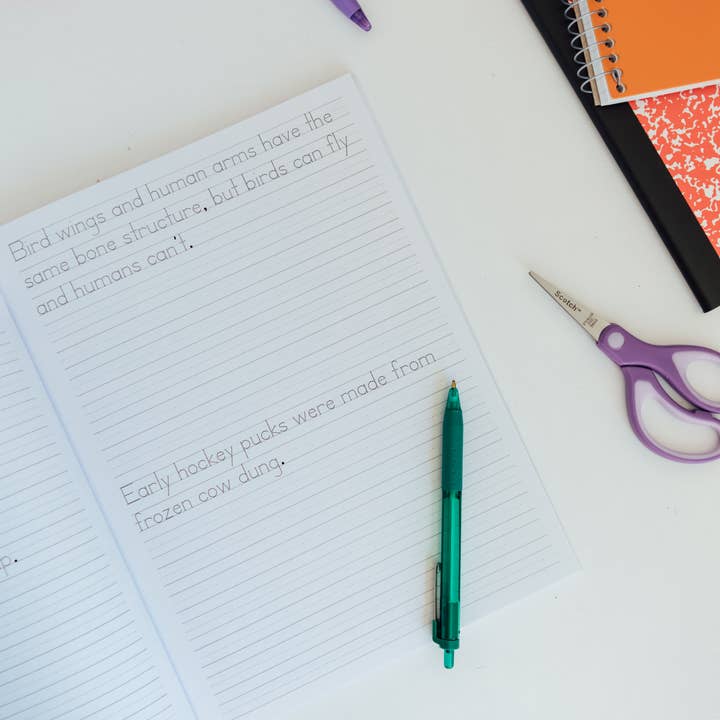 Bird wings and human arms have the
same bone structure, but birds can fly
and humans can't.
Early hockey pucks were made from
frozen cow dung.
p.
Scotch™